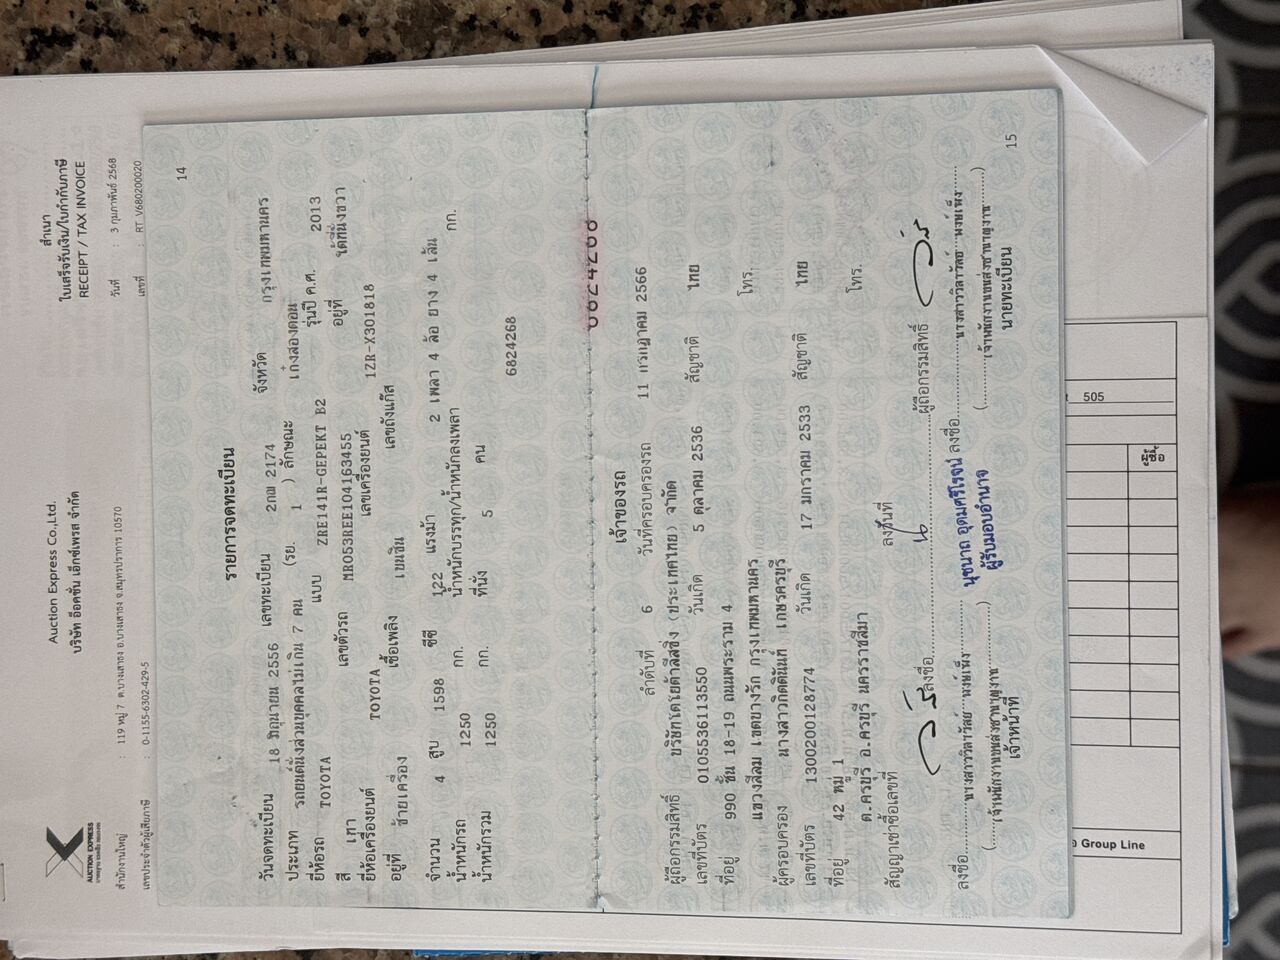 AUCTION EXPRESS
Auction Express Co.,Ltd.
บริษัท อ๊อคชั่น เอ็กซ์เพรส จำกัด
สำเนา
ใบเสร็จรับเงิน/ใบกำกับภาษี
RECEIPT / TAX INVOICE
สำนักงานใหญ่ : 119 หมู่ 7 ต.บางเสาธง อ.บางเสาธง จ.สมุทรปราการ 10570
วันที่ : 3 กุมภาพันธ์ 2568
เลขประจำตัวผู้เสียภาษี : 0-1155-6302-429-5
เลขที่ : RT V680200020
14
รายการจดทะเบียน
วันจดทะเบียน 18 มิถุนายน 2556 เลขทะเบียน 2กณ 2174 จังหวัด กรุงเทพมหานคร
ประเภท รถยนต์นั่งส่วนบุคคลไม่เกิน 7 คน (รย. 1 ) ลักษณะ เก๋งสองตอน
ยี่ห้อรถ TOYOTA แบบ ZRE141R-GEPEKT B2 รุ่นปี ค.ศ. 2013
สี เทา เลขตัวรถ MR053REE104163455 อยู่ที่ ใต้ที่นั่งขวา
ยี่ห้อเครื่องยนต์ TOYOTA เลขเครื่องยนต์ 1ZR-X301818
อยู่ที่ ซ้ายเครื่อง เชื้อเพลิง เบนซิน เลขถังแก๊ส
จำนวน 4 สูบ 1598 ซีซี 122 แรงม้า 2 เพลา 4 ล้อ ยาง 4 เส้น
น้ำหนักรถ 1250 กก. น้ำหนักบรรทุก/น้ำหนักลงเพลา กก.
น้ำหนักรวม 1250 กก. ที่นั่ง 5 คน
6824268
6824268
เจ้าของรถ
ลำดับที่ 6 วันที่ครอบครองรถ 11 กรกฎาคม 2566
ผู้ถือกรรมสิทธิ์ บริษัทโตโยต้าลีสซิ่ง (ประเทศไทย) จำกัด
เลขที่บัตร 0105536113550 วันเกิด 5 ตุลาคม 2536 สัญชาติ ไทย
ที่อยู่ 990 ชั้น 18-19 ถนนพระราม 4 โทร.
แขวงสีลม เขตบางรัก กรุงเทพมหานคร
ผู้ครอบครอง นางสาวกิตตินันท์ เกษรครบุรี
เลขที่บัตร 1300200128774 วันเกิด 17 มกราคม 2533 สัญชาติ ไทย
ที่อยู่ 42 หมู่ 1 โทร.
ต.ครบุรี อ.ครบุรี นครราชสีมา
สัญญาเช่าซื้อเลขที่ ลงวันที่
ลงชื่อ ผู้ถือกรรมสิทธิ์
นุชนาถ อุดมศรีโรจน์
ผู้รับมอบอำนาจ
ลงชื่อ นางสาววิลาวัลย์ พงษ์เพ็ง ลงชื่อ นางสาววิลาวัลย์ พงษ์เพ็ง
(เจ้าพนักงานขนส่งชำนาญงาน) (เจ้าพนักงานขนส่งชำนาญงาน)
เจ้าหน้าที่ นายทะเบียน
15
505
Group Line